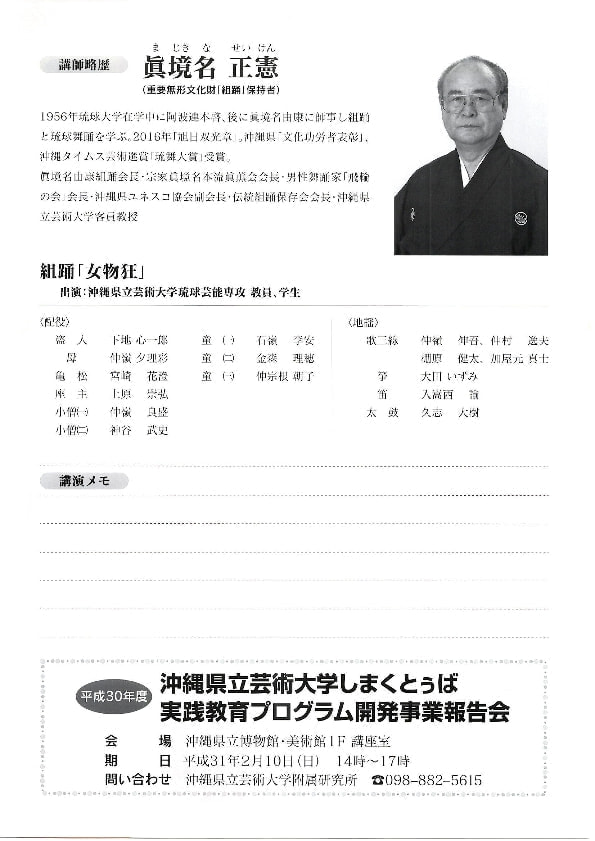 講師略歴
ま じき な せい けん
眞境名 正憲
(重要無形文化財「組踊」保持者)
1956年琉球大学在学中に阿波連本啓、後に眞境名由康に師事し組踊
と琉球舞踊を学ぶ。2016年「旭日双光章」。沖縄県「文化功労者表彰」、
沖縄タイムス芸術選賞「琉舞大賞」受賞。
眞境名由康組踊会会長・宗家眞境名本流眞薫会会長・男性舞踊家「飛輪
の会」会長・沖縄県ユネスコ協会副会長・伝統組踊保存会会長・沖縄県
立芸術大学客員教授
組踊「女物狂」
出演:沖縄県立芸術大学琉球芸能専攻 教員、学生
〈配役〉
盗人 下地 心一郎 童(一) 石嶺 孝安
母 仲嶺 夕理彩 童(二) 金森 理穂
亀松 宮崎 花澄 童(一) 仲宗根 朝子
座主 上原 崇弘
小僧(一) 仲嶺 良盛
小僧(二) 神谷 武史
〈地謡〉
歌三線 仲嶺 伸吾、仲村 逸夫
棚原 健太、加屋元 真士
箏 大田 いずみ
笛 入嵩西 諭
太鼓 久志 大樹
講演メモ
平成30年度
沖縄県立芸術大学しまくとぅば
実践教育プログラム開発事業報告会
会場 沖縄県立博物館・美術館1F 講座室
期日 平成31年2月10日(日) 14時〜17時
問い合わせ 沖縄県立芸術大学附属研究所 ☎098-882-5615